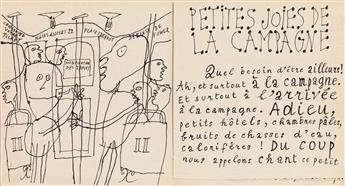 PETITES JOIES DE
LA CAMPAGNE
Quel besoin d'être ailleurs!
Ah, et surtout à la campagne.
Et surtout à l'arrivée
à la campagne. Adieu,
petits hôtels, chambres pâles,
bruits de chasses d'eau,
calorifères! DU COUP
nous appelons chant ce petit
II
II